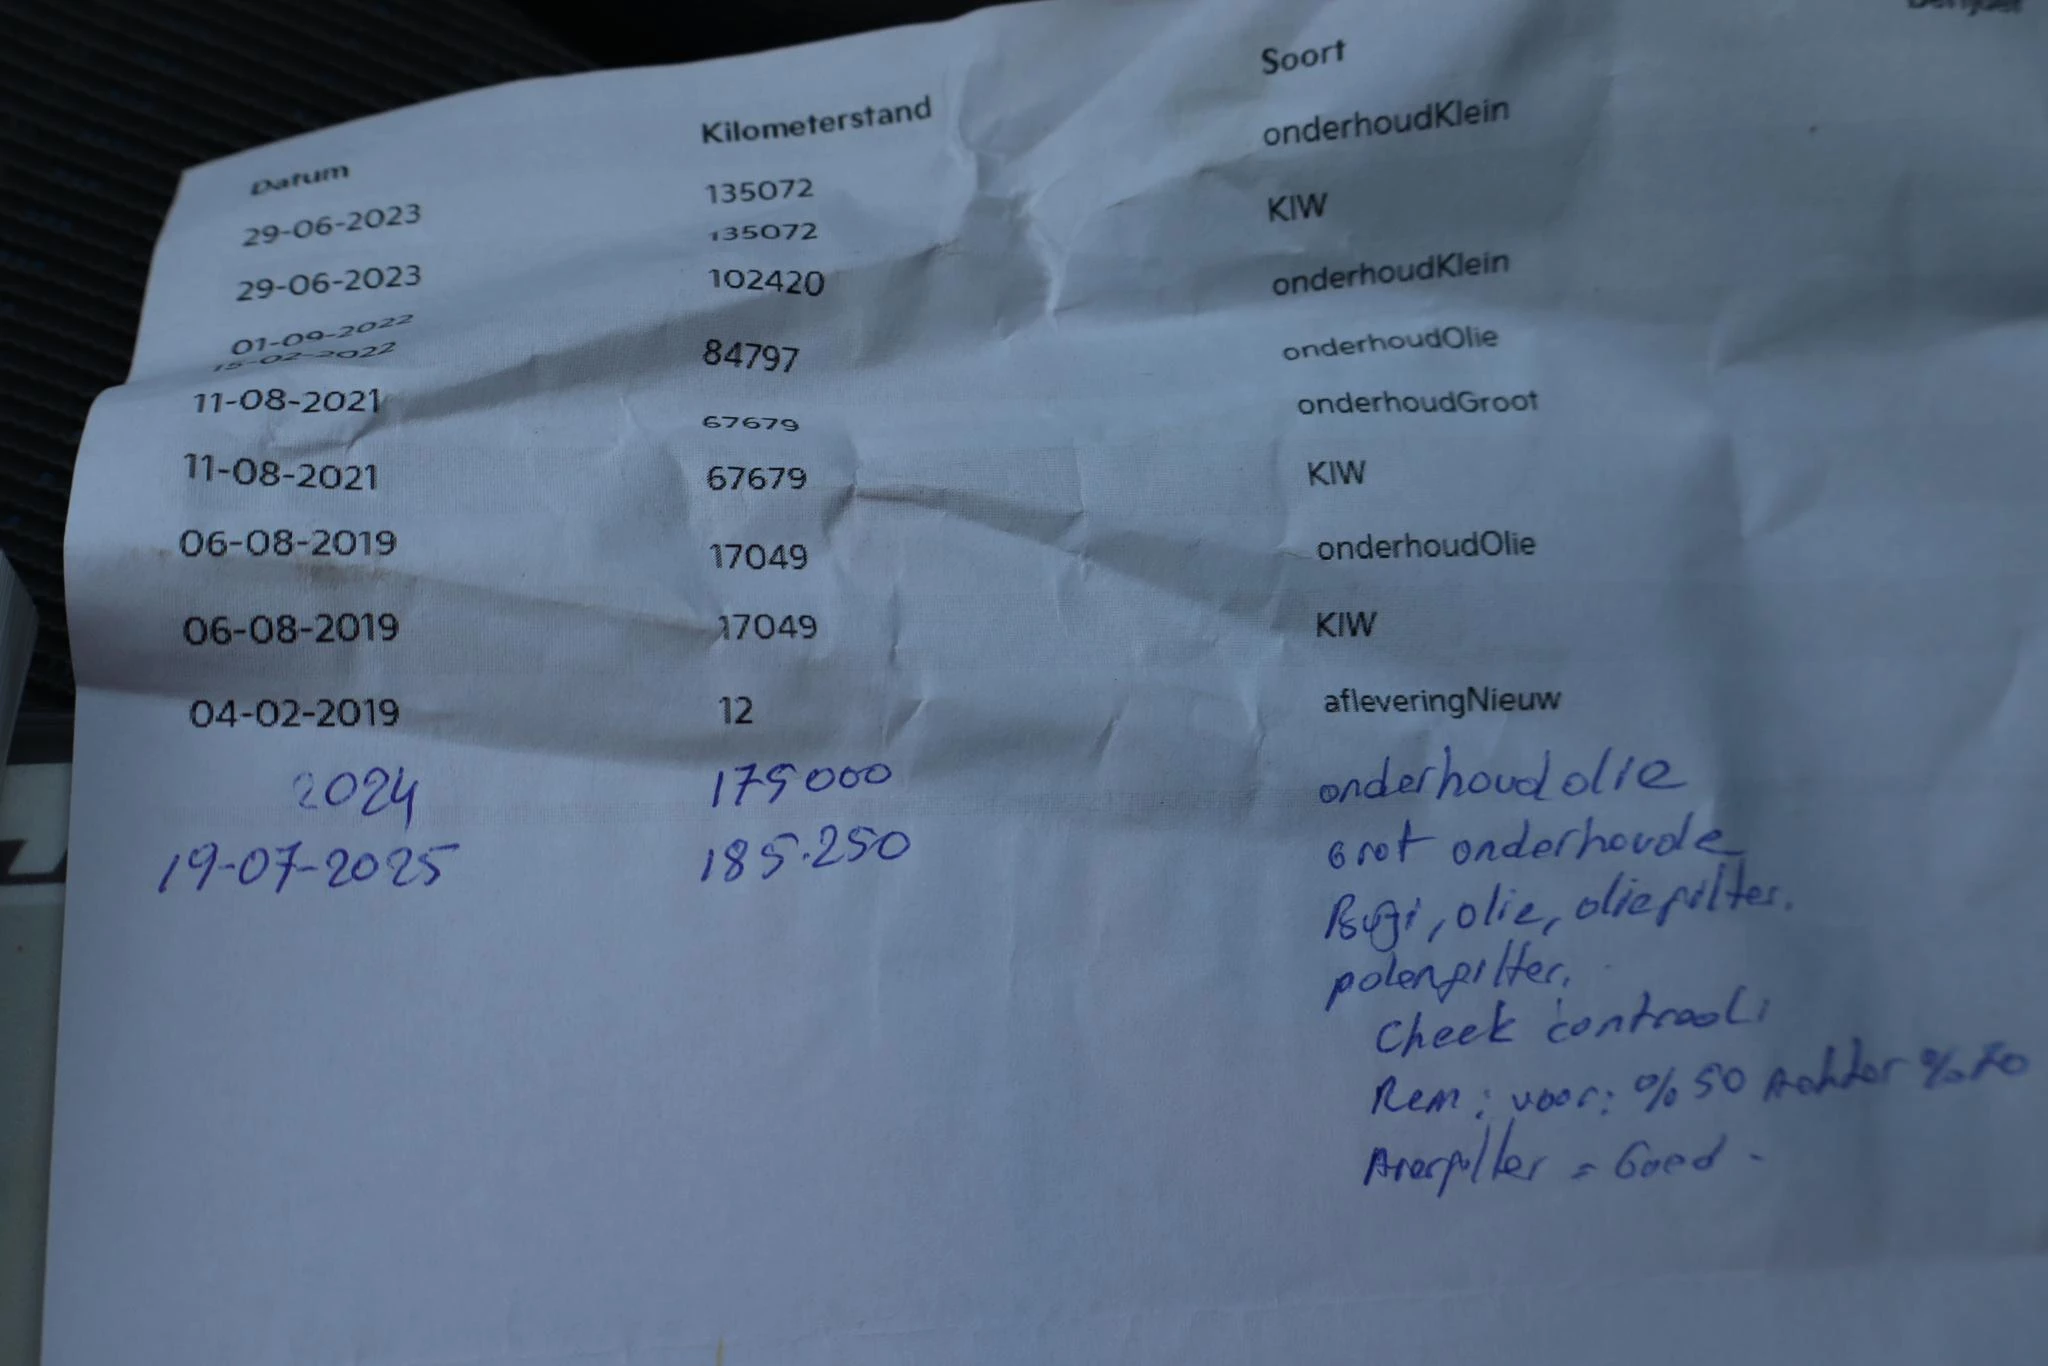 Datum Kilometerstand Soort
29-06-2023 135072 onderhoudKlein
29-06-2023 135072 KIW
01-09-2022 102420 onderhoudKlein
15-02-2022 84797 onderhoudOlie
11-08-2021 67679 onderhoudGroot
11-08-2021 67679 KIW
06-08-2019 17049 onderhoudOlie
06-08-2019 17049 KIW
04-02-2019 12 afleveringNieuw
2024 175000 onderhoud olie
19-07-2025 185.250 Grot onderhoude
Bugi, olie, oliefilter.
polenfilter.
Cheek controol:
Rem: voor: % 50 Achter % 70
= Goed -